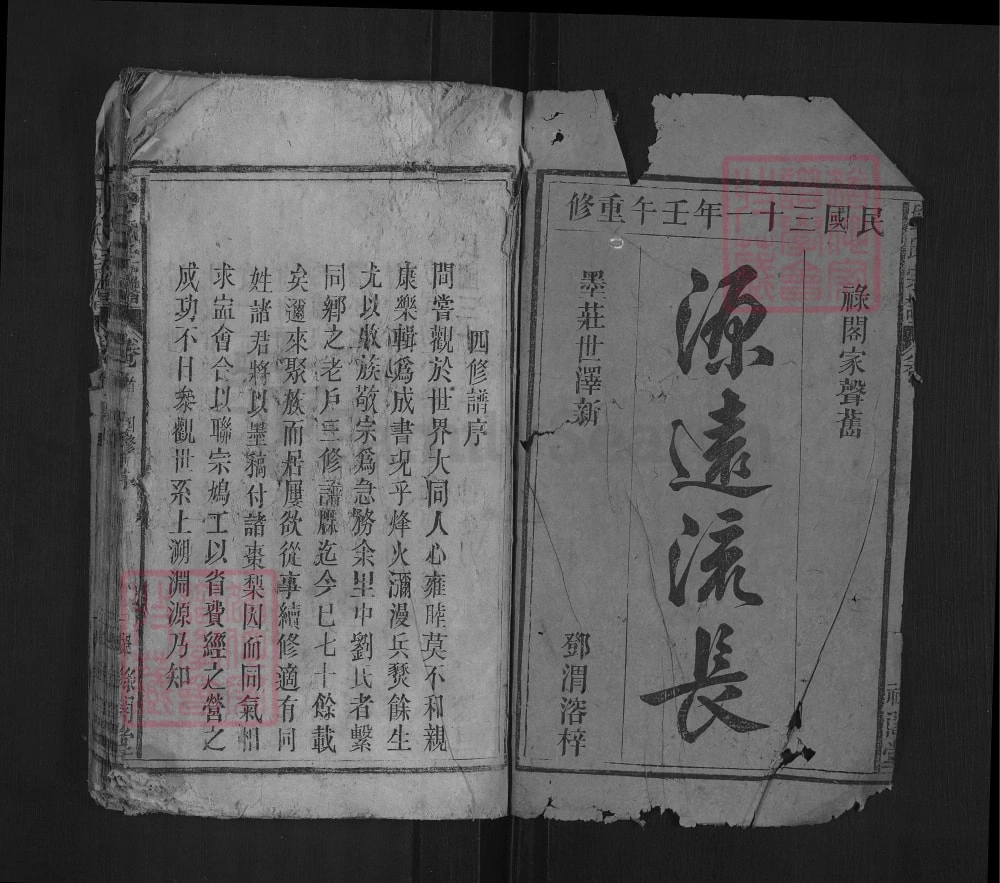 民國三十一年壬午重修
祿閣家聲舊
源遠流長
墨莊世澤新
鄧渭溶梓
四修譜序
間嘗觀於世界大同人心雍睦莫不和親
康樂輯爲成書況乎烽火瀰漫兵燹餘生
尤以收族敬宗爲急務余里中劉氏者繫
同鄉之老戶三修譜牒迄今已七十餘載
矣邇來聚族而居屢欲從事續修適有同
姓諸君將以墨稿付諸棗梨因而同氣相
求盍會合以聯宗鳩工以省費經之營之
成功不日衆觀世系上溯淵源乃知